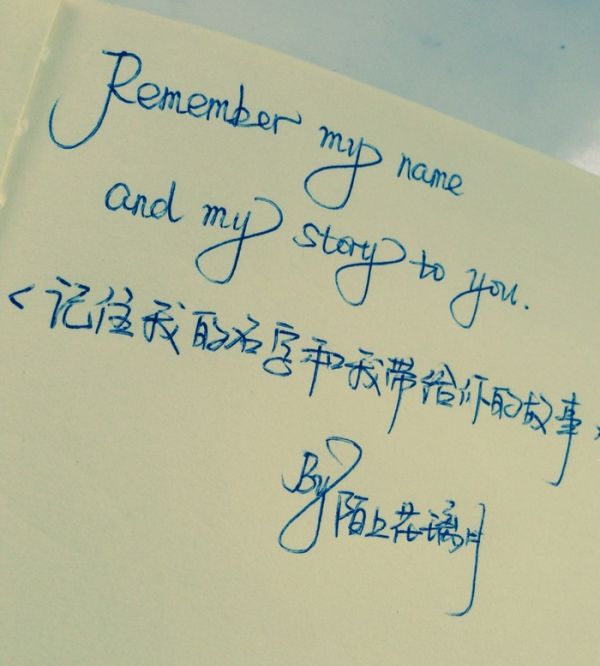 Remember my name
and my story to you.
<记住我的名字和我带给你的故事,
By陌上花璃月